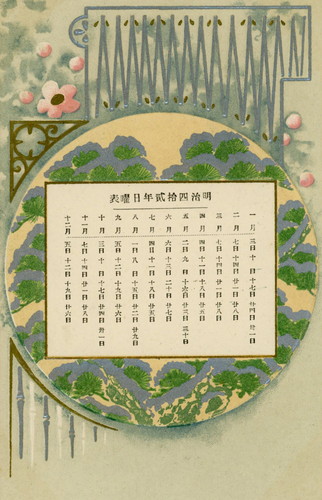 明治四拾貳年日曜表
一月 三日 十日 十七日 廿四日 卅一日
二月 七日 十四日 廿一日 廿八日
三月 七日 十四日 廿一日 廿八日
四月 四日 十一日 十八日 廿五日
五月 二日 九日 十六日 廿三日 三十日
六月 六日 十三日 二十日 廿七日
七月 四日 十一日 十八日 廿五日
八月 一日 八日 十五日 廿二日 廿九日
九月 五日 十二日 十九日 廿六日
十月 三日 十日 十七日 廿四日 卅一日
十一月 七日 十四日 廿一日 廿八日
十二月 五日 十二日 十九日 廿六日